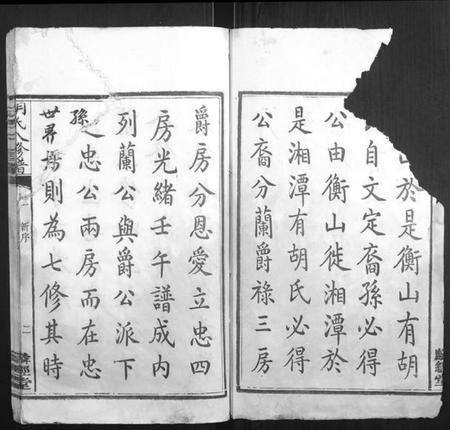 山於是衡山有胡
自文定裔孫必得
公由衡山徙湘潭於
是湘潭有胡氏必得
公裔分蘭爵祿三房
爵房分恩愛立忠四
房光緒壬午譜成內
列蘭公與爵公派下
孫之忠公兩房而在忠
世界譜則為七修其時
氏八修譜
新序
二